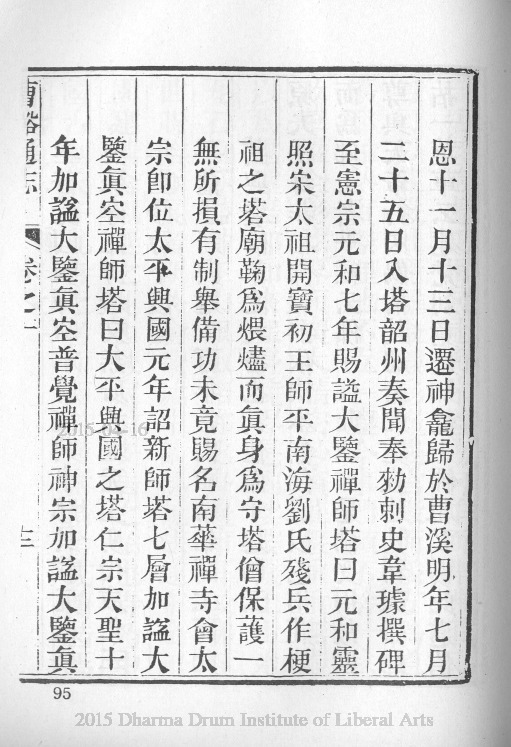 恩十一月十三日遷神龕歸於曹溪明年七月
二十五日入塔韶州奏聞奉勑刺史韋璩撰碑
至憲宗元和七年賜謚大鑒禪師塔曰元和靈
照宋太祖開寶初王師平南海劉氏殘兵作梗
祖之塔廟鞠爲煨燼而眞身爲守塔僧保護一
無所損有制舉備功未竟賜名南華禪寺會太
宗卽位太平興國元年詔新師塔七層加謚大
鑒眞空禪師塔曰太平興國之塔仁宗天聖十
年加謚大鑒眞空普覺禪師神宗加謚大鑒眞
曹谿通志
卷之一
十三
95
2015 Dharma Drum Institute of Liberal Arts